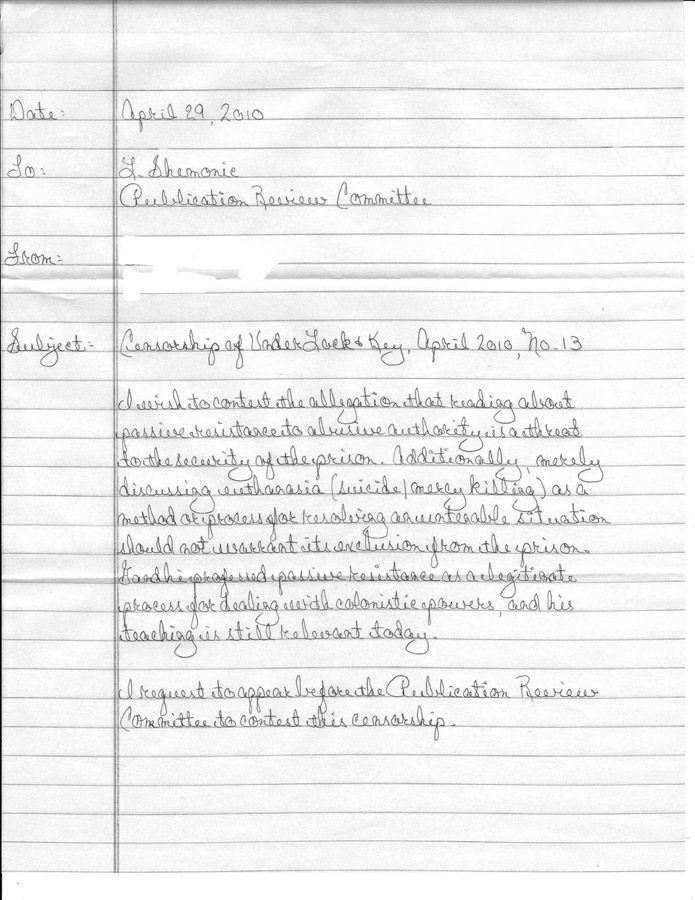 Date: April 29, 2010
To: L. Shemonie
Publication Review Committee
From:
Subject: Censorship of Under Lock & Key, April 2010, No. 13
I wish to contest the allegation that reading about
passive resistance to abusive authority is a threat
to the security of the prison. Additionally, merely
discussing euthanasia (suicide/mercy killing) as a
method or process for resolving an untenable situation
should not warrant its exclusion from the prison.
Gandhi professed passive resistance as a legitimate
process for dealing with colonistic powers, and his
teaching is still relevant today.
I request to appear before the Publication Review
Committee to contest this censorship.